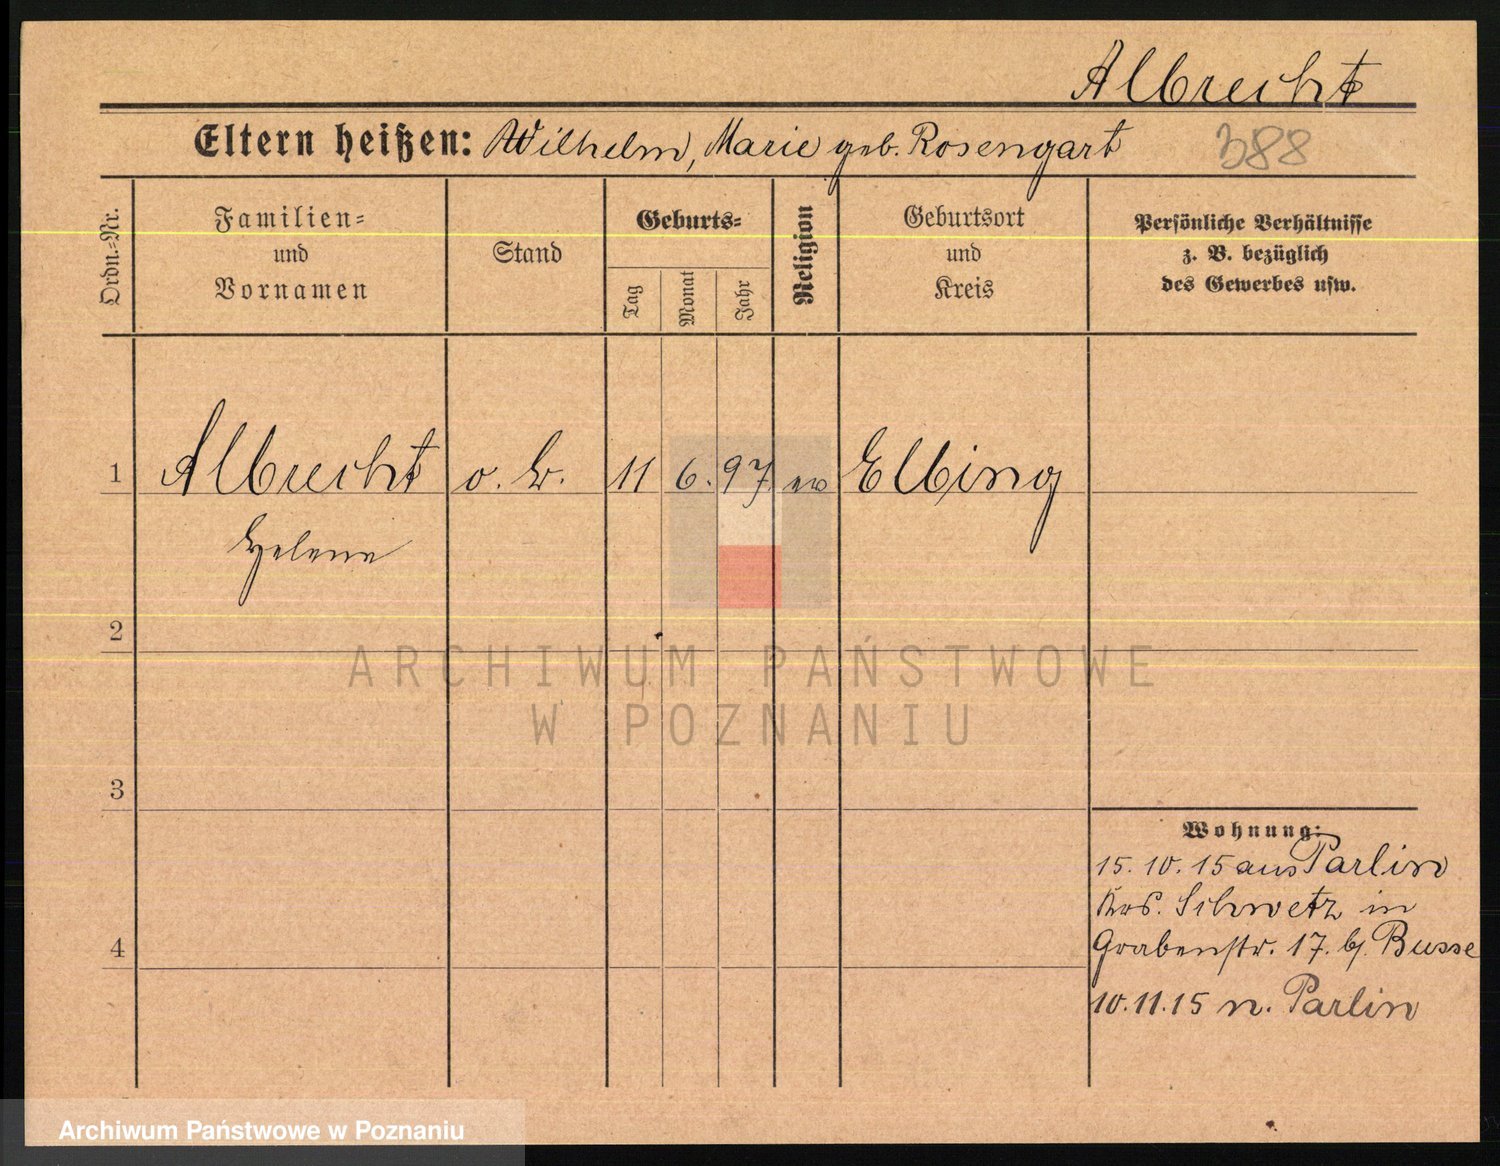 Albrecht
Eltern heißen: Wilhelm, Marie geb. Rosengart
388
Ordn.-Nr.
Familien-
und
Vornamen
Stand
Geburts-
Tag
Monat
Jahr
Religion
Geburtsort
und
Kreis
Persönliche Verhältnisse
z. B. bezüglich
des Gewerbes usw.
1 Albrecht o. B. 11 6. 97. ev Elbing
Helene
2
ARCHIWUM PAŃSTWOWE
W POZNANIU
3
Wohnung:
15. 10. 15 aus Parlin
Krs. Schwetz in
4
Grabenstr. 17. bj. Busse
10.11.15 n. Parlin
Archiwum Państwowe w Poznaniu